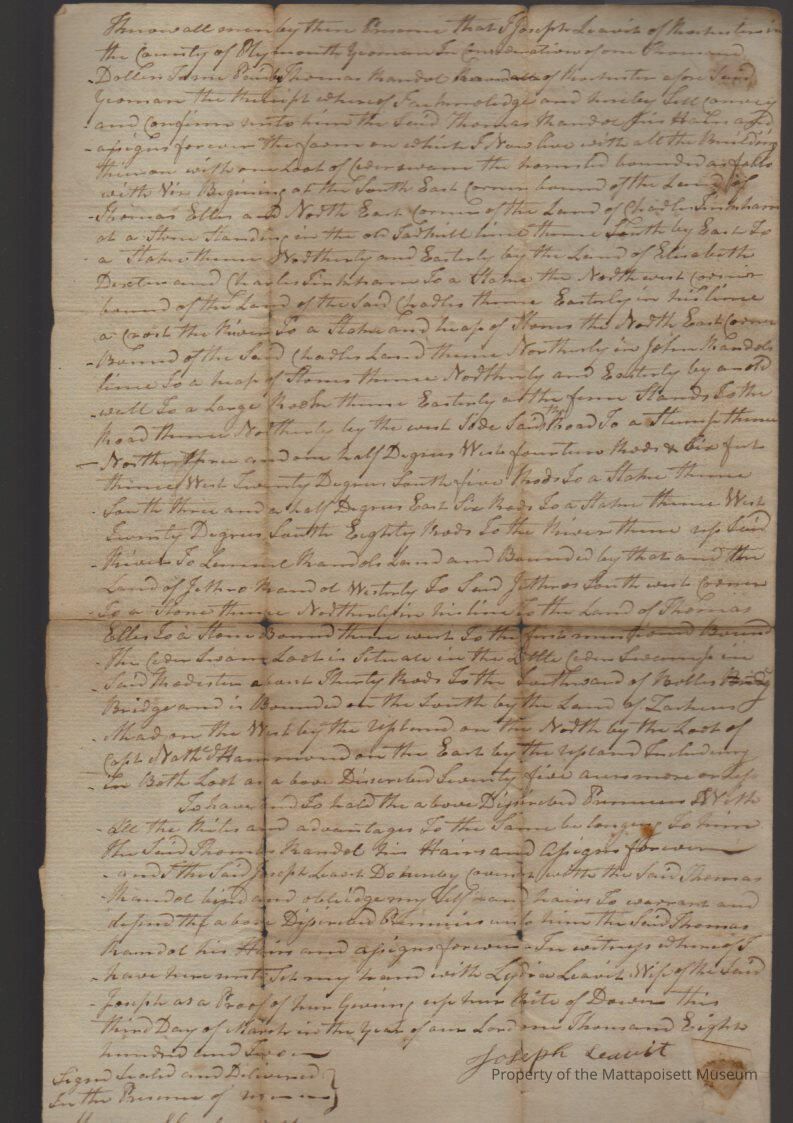 Know all men by these Presents that I Joseph Leavit of Rochester in
the County of Plymouth Yeoman In Consideration of one Thousand
Dollers To me Paid by Thomas Randol of Rochester afore Said
Yeoman the Receipt whereof I acknowledge and hereby Sell convey
and Confirm unto him the Said Thomas Randol his Hairs and
asigns forever the farm on which I Now live with all the Building
thereon with one Loot of Ceder swam the homsted bounded as follo
with Viz Begining at the South East Corner bound of the Land of
Thomas Ellis and North East Corner of the Land of Charles Pinkham
at a Stone Standing in the old line thence South by East To
a Stake thence Northerly and Easterly by the Land of Elisabeth
Dexter and Charles Pinkham To a Stake the North west Corner
bound of the Land of the Said Charles thence Easterly in his line
a Crost the River To a Stake and heap of Stones the North East Corner
Bound of the Said Charles Land thence Northerly in John Randols
line To a heap of Stones thence Northerly and Easterly by an old
wall To a Large Rock thence Easterly as the fence Stands To the
Road thence Northerly by the west Side Said Road To a Stump thence
North three and one half Degrees West fourteen Rods & Six feet
thence West Twenty Degrees South five Rods To a Stake thence
South three and a half Degrees East Six Rods To a Stake thence West
Twenty Degrees South Eighty Rods To the River thence up Said
River To Lemuel Randols Land and Bounded by that and the
Land of Jethro Randol Westerly To Said Jethros South west Corner
To a Stone thence Northerly in his line To the Land of Thomas
Ellis To a Stone Bound thence west To the first mentioned Bound
The Ceder Swam Loot is Situate in the Little Ceder Swamp in
Said Rochester about Thirty Rods To the Southward of Bolles
Bridge and is Bounded on the South by the Land of
Mead on the West by the upland on the North by the Loot of
Capt Nathl Hammond on the East by the upland Including
in Both Loot as above Discribed Seventy five acurs more or Less
To have and To hold the above Discribed Premises With
all the Rites and advantages To the Same belonging To him
the Said Thomas Randol his Hairs and asigns forever
and I the Said Joseph Leavit Do hereby Covenant with the Said Thomas
Randol bind and obliedge my Self and hairs To warrant and
defend the above Discribed Premises unto him the Said Thomas
Randol his Hairs and asigns forever In witness whereof I
have here unto Set my hand with Lydia Leavit Wife of the Said
Joseph as a Proof of hur Giving up hur Rite of Dower this
third Day of March in the Year of our Lord one Thousand Eight
hundred and Two
Joseph Leavit
Signed Sealed and Delivered
In the Presence of
Property of the Mattapoisett Museum